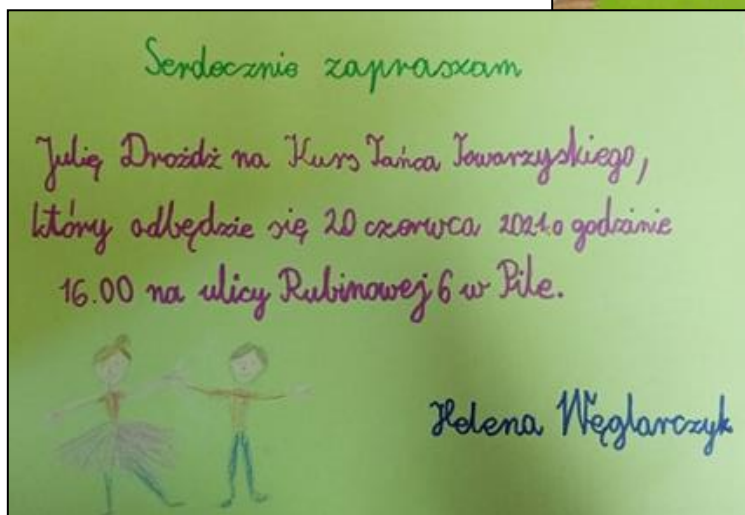 Serdecznie zapraszam
Julię Drożdż na Kurs Tańca Towarzyskiego,
który odbędzie się 20 czerwca 2021 o godzinie
16.00 na ulicy Rubinowej 6 w Pile.
Helena Węglarczyk